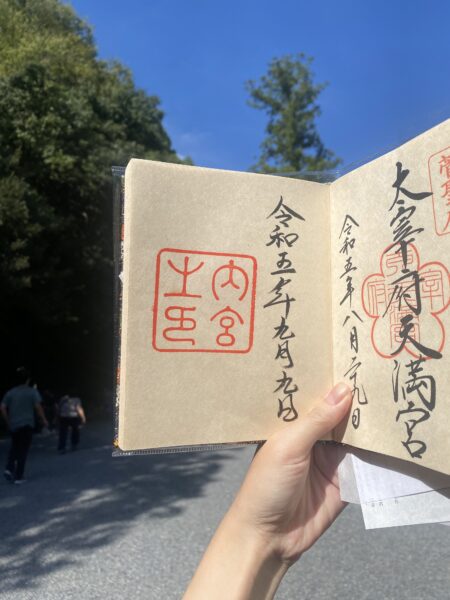 太宰府天満宮
令和五年八月二十九日
令和五年九月九日
内宮
之印